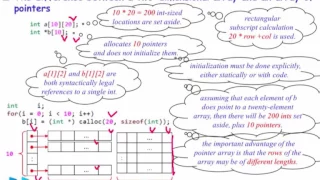 pointers
int a[10][20];
int *b[10];
10 * 20 = 200 int-sized
locations are set aside.
rectangular
subscript calculation
20 * row +col is used.
allocates 10 pointers
and does not initialize them.
a[1][2] and b[1][2] are
both syntactically legal
references to a single int
initialization must be done explicitly,
either statically or with code.
int i;
for(i = 0; i < 10; i++)
b[i] = (int *) calloc(20, sizeof(int));
assuming that each element of b
does point to a twenty-element
array, then there will be 200 ints set
aside, plus 10 pointers.
10
the important advantage of the
pointer array is that the rows of the
array may be of different lengths.